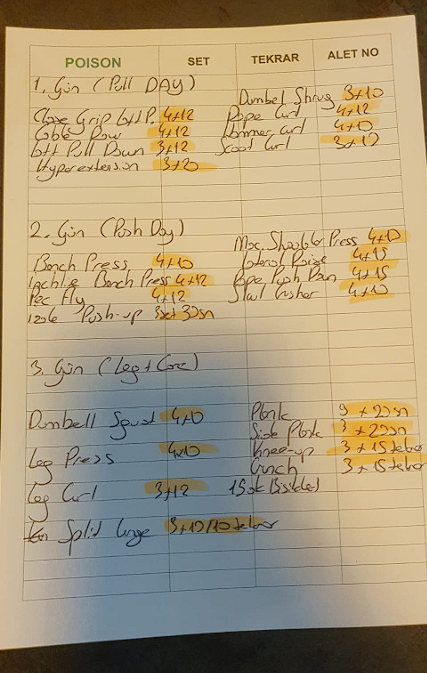 POISON SET TEKRAR ALET NO
1. Gün (Pull DAY)
Dumbel Shrug 3+10
Close Grip Latt P. 4+12
Rope Curl 4+12
Cable Row 4+12
Hammer Curl 4+10
Latt Pull Down 3+12
Scoot Curl 3+12
Hyperextension 3+20
2. Gün (Push Day)
Mac. Shoulder Press 4+10
Bench Press 4+10
Lateral Raise 4+15
Bench Press 4+12
Rope Push Down 4+15
Pec Fly 4+12
4+10
Push-up 3set 30sn
3. Gün (Leg+Core)
Dumbell Squat 4+10
Plank 3+20sn
Side Plank 3+20sn
Leg Press 4x10
Knee-up 3+15tekrar
Crunch 3+15tekrar
Leg Curl 3+12
15dk Bisiklet
Split Lunge 3+10/10 tekrar